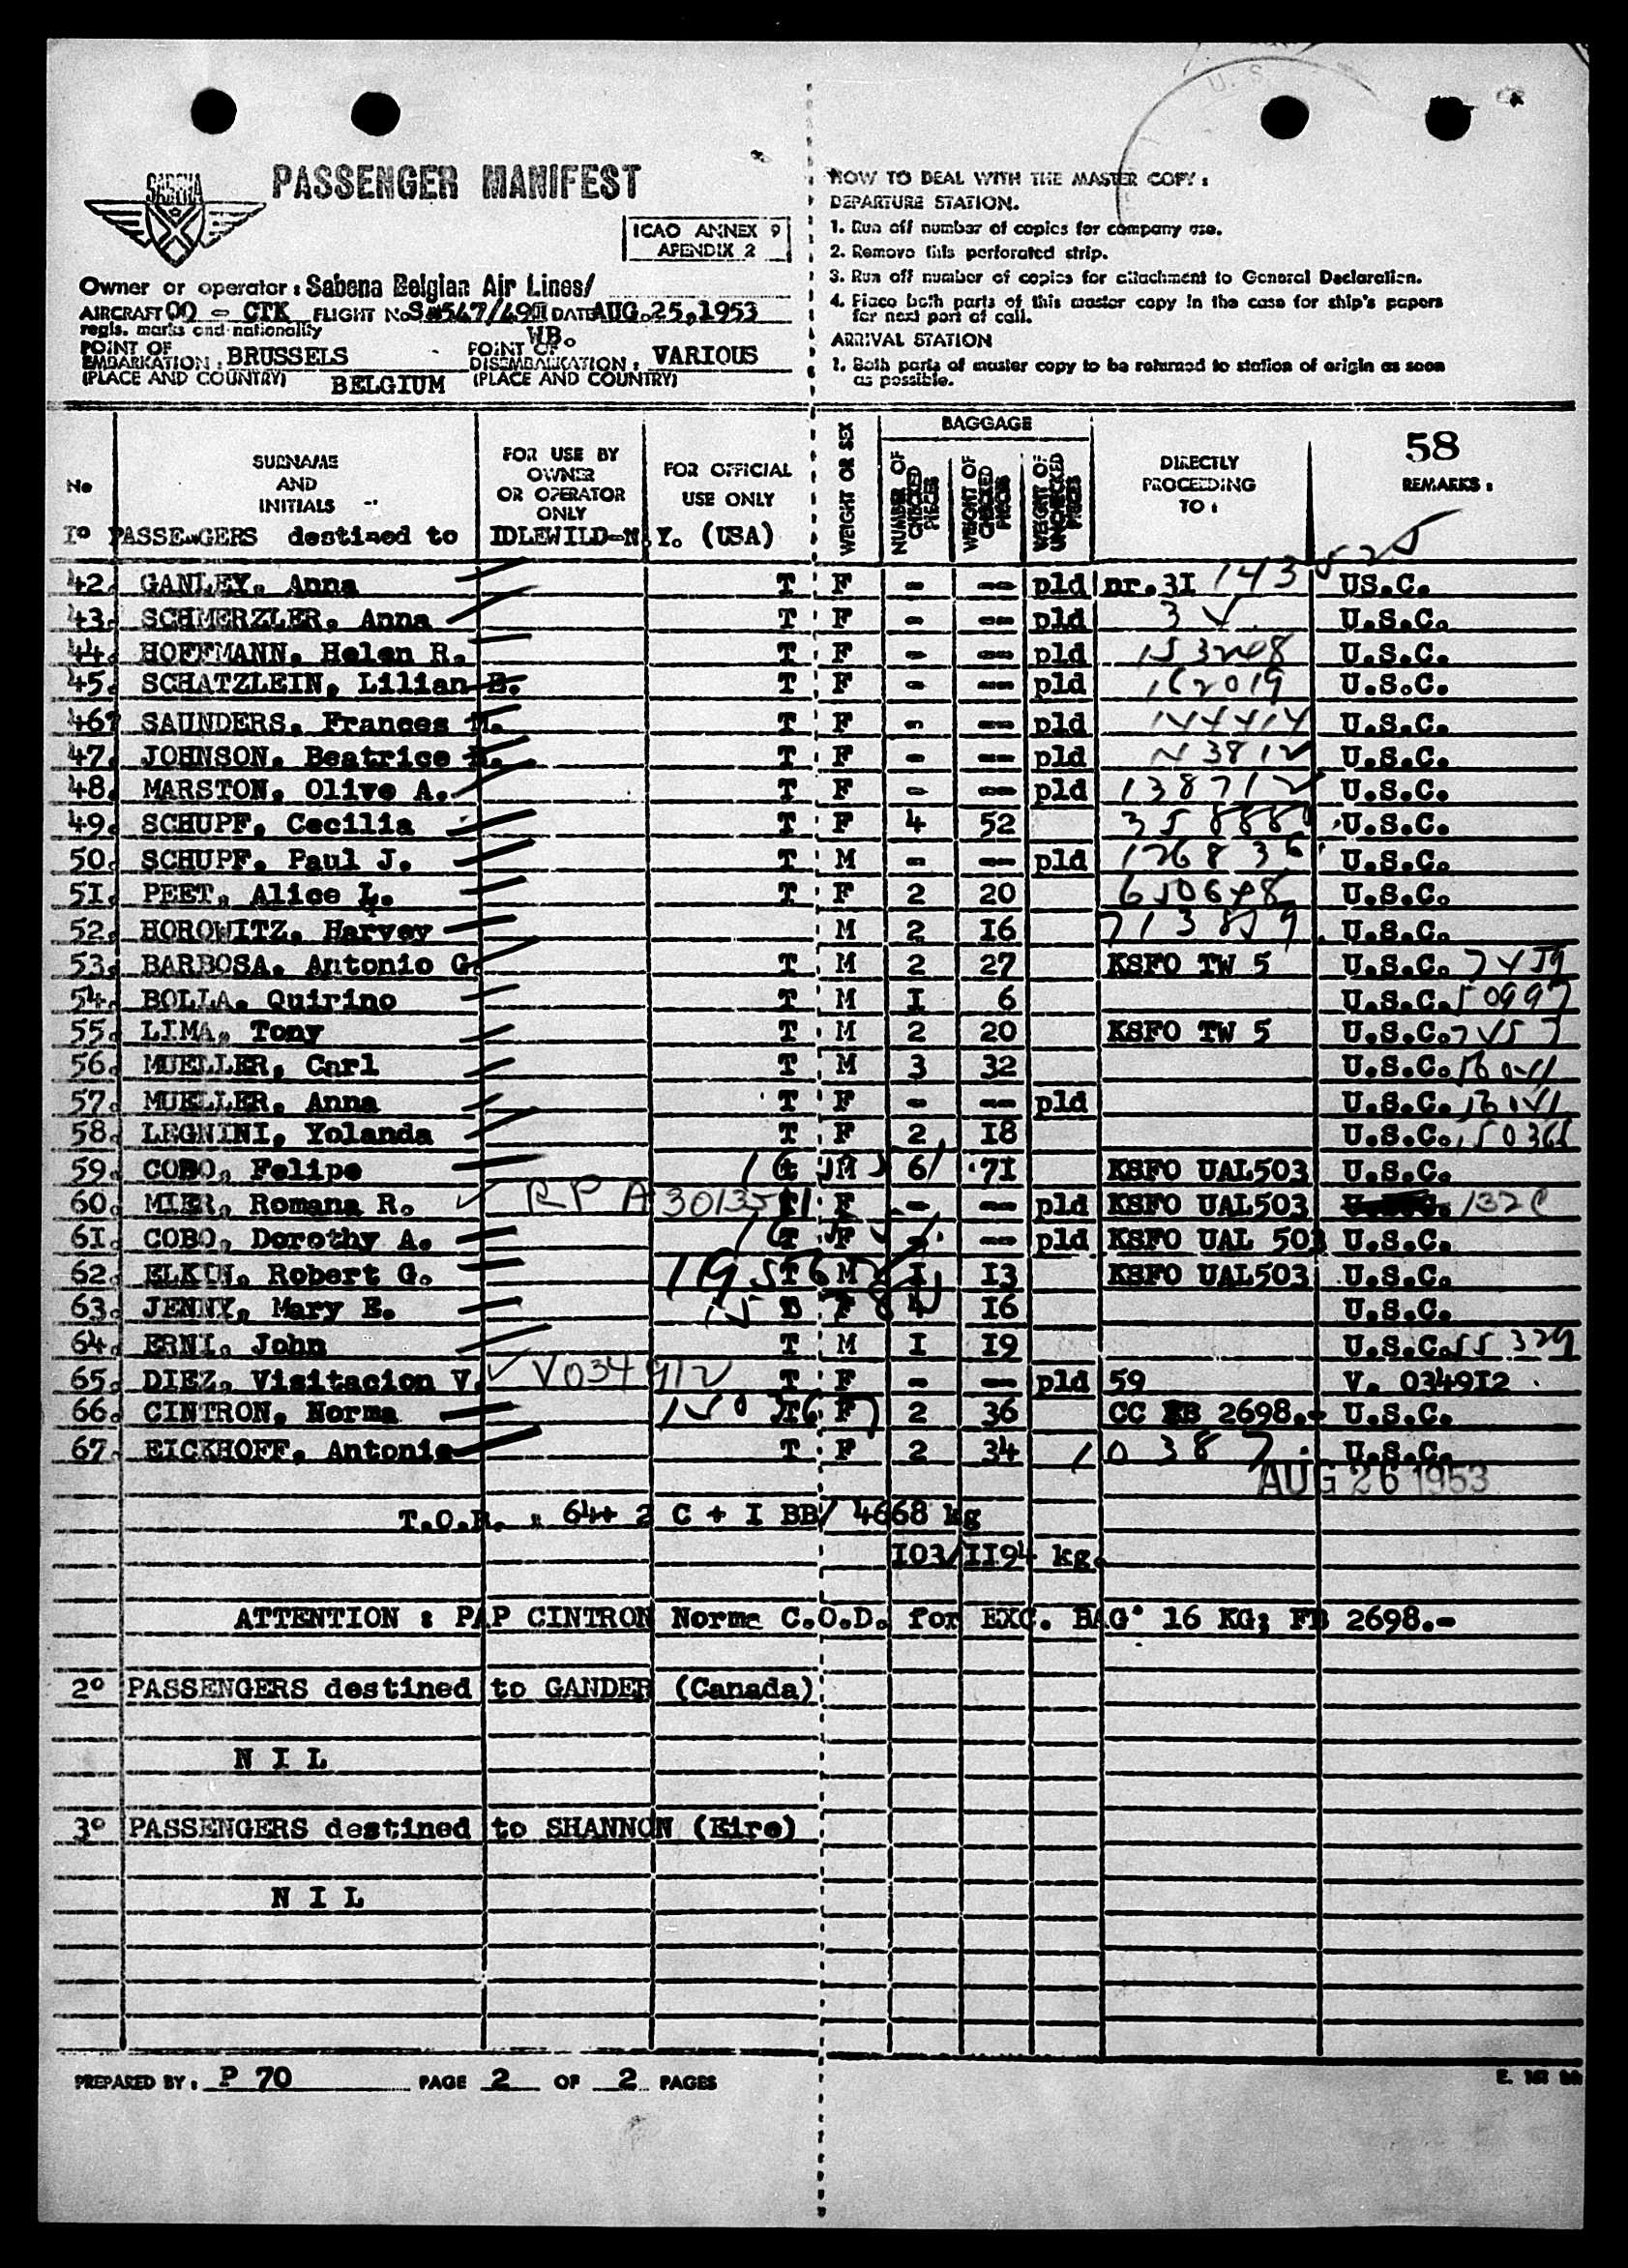 U. S.
SABENA
PASSENGER MANIFEST
ICAO ANNEX 9
APENDIX 2
Owner or operator : Sabena Belgian Air Lines/
AIRCRAFT OO - CTK FLIGHT No DATE AUG.25,1953
regis. marks and nationality
WB.
POINT OF EMBARKATION : BRUSSELS POINT OF DISEMBARKATION : VARIOUS
(PLACE AND COUNTRY) BELGIUM (PLACE AND COUNTRY)
HOW TO DEAL WITH THE MASTER COPY :
DEPARTURE STATION.
1. Run off number of copies for company use.
2. Remove this perforated strip.
3. Run off number of copies for attachment to General Declaration.
4. Place both parts of this master copy in the case for ship's papers
for next port of call.
ARRIVAL STATION
1. Both parts of master copy to be returned to station of origin as soon
as possible.
No
SURNAME
AND
INITIALS
FOR USE BY
OWNER
OR OPERATOR
ONLY
FOR OFFICIAL
USE ONLY
WEIGHT OR SEX
BAGGAGE
NUMBER OF CHECKED PIECES
WEIGHT OF CHECKED PIECES
WEIGHT OF UNCHECKED PIECES
DIRECTLY
PROCEEDING
TO :
58
REMARKS :
I° PASSENGERS destined to IDLEWILD-N.Y. (USA)
42. GANLEY, Anna T F - -- pld nr.3I 143525 US.C.
43. SCHMERZLER, Anna T F - -- pld U.S.C.
44. HOFFMANN, Helen R. T F - -- pld U.S.C.
45. SCHATZLEIN, Lilian E. T F - -- pld 162019 U.S.C.
46. SAUNDERS, Frances T F - -- pld 144414 U.S.C.
47. JOHNSON, Beatrice T F - -- pld U.S.C.
48. MARSTON, Olive A. T F - -- pld 138712 U.S.C.
49. SCHUPF, Cecilia T F 4 52 U.S.C.
50. SCHUPF, Paul J. T M - -- pld U.S.C.
5I. PEET, Alice L. T F 2 20 U.S.C.
52. HOROWITZ, Harvey M 2 I6 U.S.C.
53. BARBOSA, Antonio G. T M 2 27 KSFO TW 5 U.S.C.
54. BOLLA, Quirino T M I 6 U.S.C. 50997
55. LIMA, Tony T M 2 20 KSFO TW 5 U.S.C.
56. MUELLER, Carl T M 3 32 U.S.C.
57. MUELLER, Anna T F - -- pld U.S.C.
58. LEGNINI, Yolanda T F 2 I8 U.S.C.
59. COBO, Felipe M 6 7I KSFO UAL503 U.S.C.
60. MIER, Romana R. RPA F - -- pld KSFO UAL503
6I. COBO, Dorothy A. T F - -- pld KSFO UAL 503 U.S.C.
62. ELKIN, Robert G. T M I I3 KSFO UAL503 U.S.C.
63. JENNY, Mary E. F 4 I6 U.S.C.
64. ERNI, John T M I I9 U.S.C. 55329
65. DIEZ, Visitacion V. V034912 T F - -- pld 59 V. 0349I2
66. CINTRON, Norma T F 2 36 CC FB 2698.- U.S.C.
67. EICKHOFF, Antonie T F 2 34 10387 U.S.C.
AUG 26 1953
T.O.B. : 64+ 2 C + I BB/ 4668 kg
I03/II94 kg.
ATTENTION : PAP CINTRON Norma C.O.D. for EXC. BAG. 16 KG; FB 2698.-
2° PASSENGERS destined to GANDER (Canada)
N I L
3° PASSENGERS destined to SHANNON (Eire)
N I L
PREPARED BY : P 70 PAGE 2 OF 2 PAGES